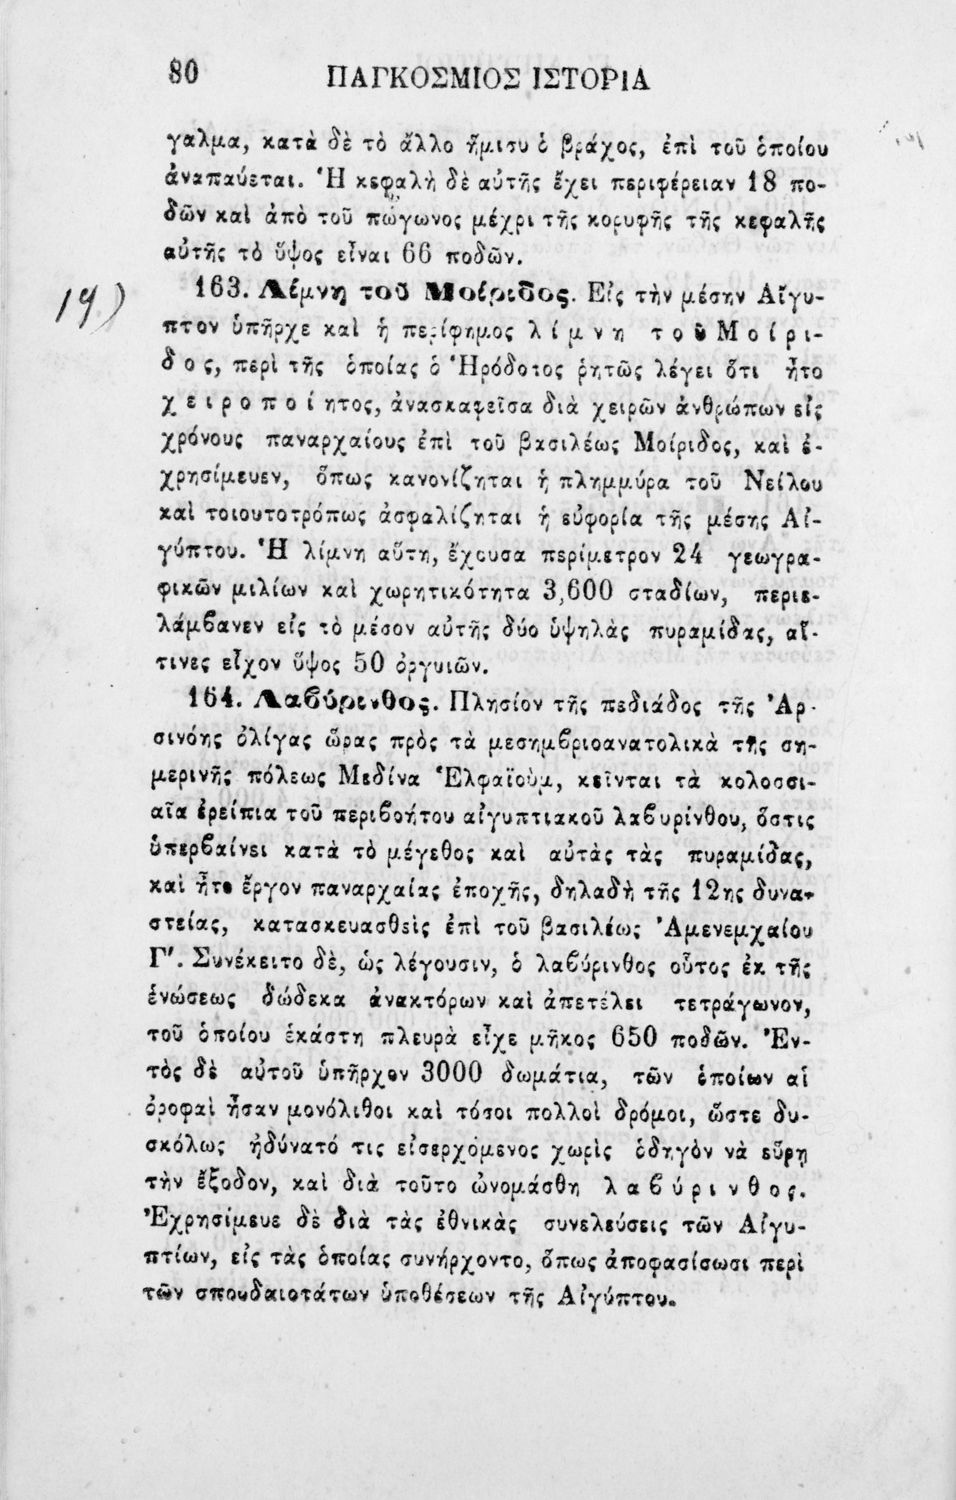 80
ΠΑΓΚΟΣΜΙΟΣ ΙΣΤΟΡΙΑ
γαλμα, κατὰ δὲ τὸ ἄλλο ἥμισυ ὁ βράχος, ἐπὶ τοῦ ὁποίου
ἀναπαύεται. Ἡ κεφαλὴ δὲ αὐτῆς ἔχει περιφέρειαν 18 πο-
δῶν καὶ ἀπὸ τοῦ πώγωνος μέχρι τῆς κορυφῆς τῆς κεφαλῆς
αὐτῆς τὸ ὕψος εἶναι 66 ποδῶν.
19)
163. Λίμνη τοῦ Μοίριδος. Εἰς τὴν μέσην Αἴγυ-
πτον ὑπῆρχε καὶ ἡ περίφημος λίμνη τοῦ Μοίρι-
δος, περὶ τῆς ὁποίας ὁ Ἡρόδοτος ῥητῶς λέγει ὅτι ἦτο
χειροποίητος, ἀνασκαφεῖσα διὰ χειρῶν ἀνθρώπων εἰς
χρόνους παναρχαίους ἐπὶ τοῦ βασιλέως Μοίριδος, καὶ ἐ-
χρησίμευεν, ὅπως κανονίζηται ἡ πλημμύρα τοῦ Νείλου
καὶ τοιουτοτρόπως ἀσφαλίζηται ἡ εὐφορία τῆς μέσης Αἰ-
γύπτου. Ἡ λίμνη αὕτη, ἔχουσα περίμετρον 24 γεωγρα-
φικῶν μιλίων καὶ χωρητικότητα 3,600 σταδίων, περιε-
λάμβανεν εἰς τὸ μέσον αὐτῆς δύο ὑψηλὰς πυραμίδας, αἵ-
τινες εἶχον ὕψος 50 ὀργυιῶν.
164. Λαβύρινθος. Πλησίον τῆς πεδιάδος τῆς Ἀρ-
σινόης ὀλίγας ὥρας πρὸς τὰ μεσημβριοανατολικὰ τῆς ση-
μερινῆς πόλεως Μεδίνα Ἑλφαϊοὺμ, κεῖνται τὰ κολοσσι-
αῖα ἐρείπια τοῦ περιβοήτου αἰγυπτιακοῦ λαβυρίνθου, ὅστις
ὑπερβαίνει κατὰ τὸ μέγεθος καὶ αὐτὰς τὰς πυραμίδας,
καὶ ἦτο ἔργον παναρχαίας ἐποχῆς, δηλαδὴ τῆς 12ης δυνα-
στείας, κατασκευασθεὶς ἐπὶ τοῦ βασιλέως Ἀμενεμχαίου
Γ'. Συνέκειτο δὲ, ὡς λέγουσιν, ὁ λαβύρινθος οὗτος ἐκ τῆς
ἑνώσεως δώδεκα ἀνακτόρων καὶ ἀπετέλει τετράγωνον,
τοῦ ὁποίου ἑκάστη πλευρὰ εἶχε μῆκος 650 ποδῶν. Ἐν-
τὸς δὲ αὐτοῦ ὑπῆρχον 3000 δωμάτια, τῶν ὁποίων αἱ
ὀροφαὶ ἦσαν μονόλιθοι καὶ τόσοι πολλοὶ δρόμοι, ὥστε δυ-
σκόλως ἠδύνατό τις εἰσερχόμενος χωρὶς ὁδηγὸν νὰ εὕρῃ
τὴν ἔξοδον, καὶ διὰ τοῦτο ὠνομάσθη λαβύρινθος.
Ἐχρησίμευε δὲ διὰ τὰς ἐθνικὰς συνελεύσεις τῶν Αἰγυ-
πτίων, εἰς τὰς ὁποίας συνήρχοντο, ὅπως ἀποφασίσωσι περὶ
τῶν σπουδαιοτάτων ὑποθέσεων τῆς Αἰγύπτου.